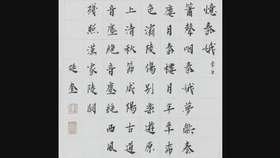 憶秦娥 李白
簫聲咽秦娥夢斷秦
樓月秦樓月年年柳
色灞陵傷別樂遊原
上清秋節咸陽古道
音塵絕音塵絕西風
殘照漢家陵闕